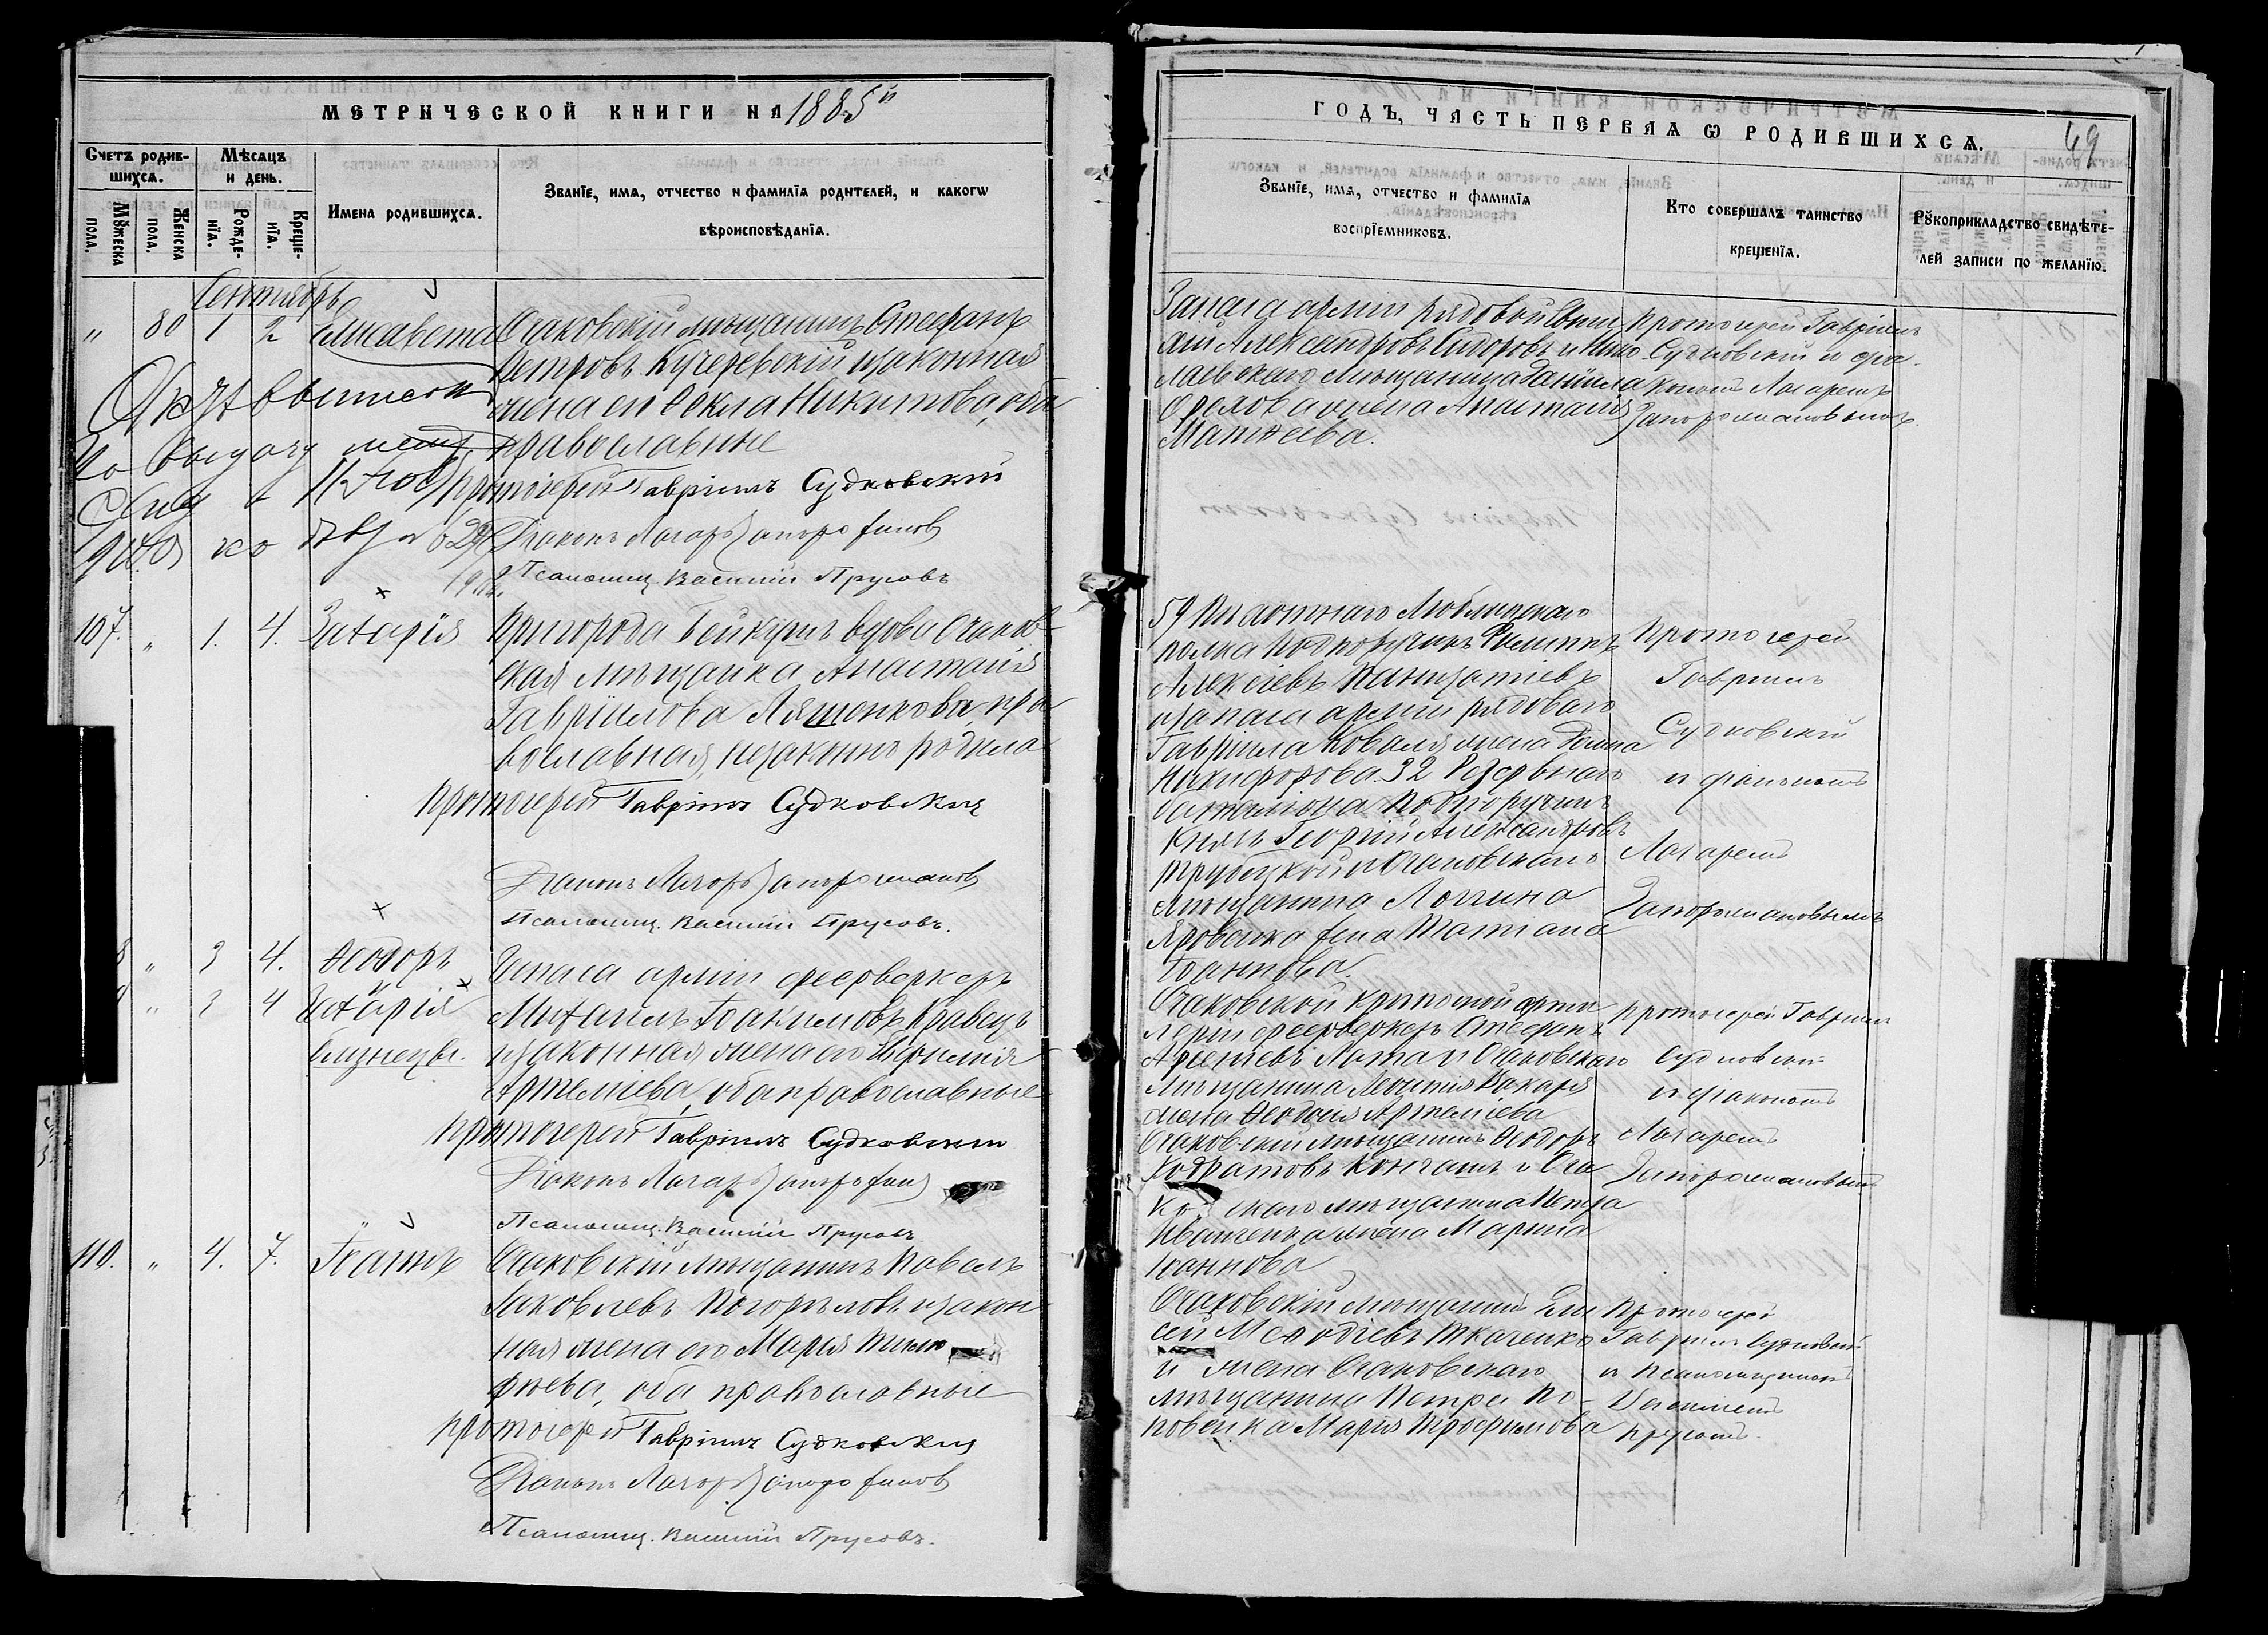 МЕТРИЧЕСКОЙ КНИГИ НА 1885й
Счетъ родив-
шихся.
Мѣсяцъ
и день.
Мужеска
пола.
Женска
пола.
Рожде-
нія.
Креще-
нія.
Имена родившихся.
Званіе, имя, отчество и фамилія родителей, и какогѡ
вѣроисповѣданія.
Сентябрь
" 80 1 2 Елисавета
Очаковскій мѣщанинъ Стефанъ
Петровъ Кучеревскій и законная
жена его Ѳекла Никитова, оба
православные
Протоіерей Гавріилъ Судковскій
Діаконъ Лазарь Запорожановъ
Псаломщ. Василій Прусовъ
107. " 1. 4. Захарія
Пригорода Бейкушъ вдова Очаков-
ская мѣщанка Анастасія
Гавріилова Ляшенкова, пра-
вославная, незаконно родила
Протоіерей Гавріилъ Судковскій
Діаконъ Лазарь Запорожановъ
Псаломщ. Василій Прусовъ.
8 " 3 4. Ѳеодоръ
" 3 4 Захарія
близнецы.
Запаса арміи феерверкеръ
Михаилъ Іоакимовъ Кравецъ
и законная жена его Евфимія
Артеміева, оба православные
Протоіерей Гавріилъ Судковскій
Діаконъ Лазарь
Псаломщ. Василій Прусовъ
110. " 4. 7. Іоаннъ
Очаковскій мѣщанинъ Павелъ
Іаковлевъ Погорѣловъ и закон-
ная жена его Марія
оба православные
Протоіерей Гавріилъ Судковскій
Діаконъ Лазарь Запорожановъ
Псаломщ. Василій Прусовъ.
ГОДЪ, ЧАСТЬ ПЕРВАЯ Ѡ РОДИВШИХСЯ.
69
Званіе, имя, отчество и фамилія
воспріемниковъ.
Кто совершалъ таинство
крещенія.
Рукоприкладство свидѣте-
лей записи по желанію.
Запаса арміи рядовой
Александровъ Сидоровъ и Нико-
лаевскаго мѣщанина Даніила
Орлова жена Анастасія
Матѳеева.
Протоіерей Гавріилъ
Судковскій и діа-
кономъ Лазаремъ
Запорожановымъ
59 Пѣхотнаго Люблинскаго
полка Подпоручикъ Филиппъ
Алексіевъ
и запаса арміи рядоваго
Гавріила Коваля жена Домна
Никифорова. 32 Резервнаго
баталіона Подпоручикъ
Князь Георгій Александровъ
Трубецкой и Очаковскаго
мѣщанина Логгина
Яровенко жена Татіана
Іоаннова.
Протоіерей
Гавріилъ
Судковскій
и діакономъ
Лазаремъ
Запорожановымъ
Очаковской крѣпостной арти-
леріи фееерверкеръ Стефанъ
Арсеніевъ и Очаковскаго
мѣщанина Леонтія Какаря
жена Ѳеодосія Артеміева
Очаковскій мѣщанинъ Ѳеодоръ
Кодратовъ и Оча-
ко скаго мѣщанина Петра
Иванченка жена Марина
Іоаннова
Протоіерей Гавріилъ
Судковскій
и діакономъ
Лазаремъ
Запорожановымъ
Очаковскій мѣщанинъ Ели-
сей Меѳодіевъ Ткаченко
и жена Очаковскаго
мѣщанина Петра По-
повенка Марія Трофимова
Протоіерей
Гавріилъ Судковскій
и псаломщикомъ
Василіемъ
Прусовымъ.